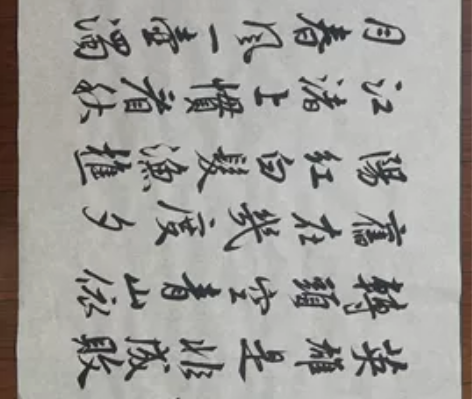 英雄是非成敗
轉頭空青山依
舊在幾度夕
陽紅白髮漁樵
江渚上慣看秋
月春风一壺濁